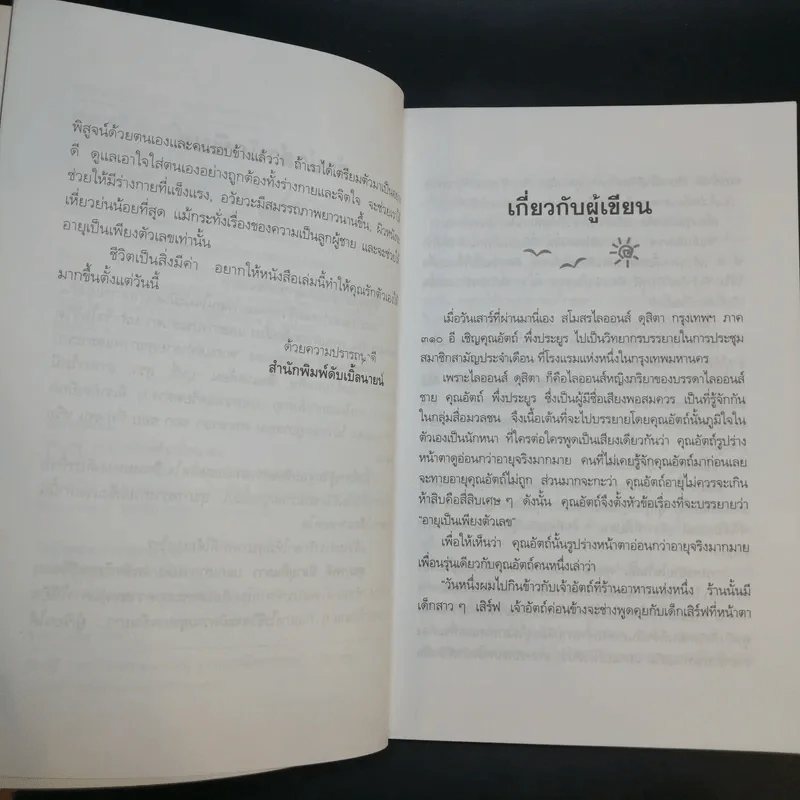 พิสูจน์ด้วยตนเองและคนรอบข้างแล้วว่า ถ้าเราได้เตรียมตัวมาเป็นอย่าง
ดี ดูแลเอาใจใส่ตนเองอย่างถูกต้องทั้งร่างกายและจิตใจ จะช่วย
ช่วยให้มีร่างกายที่แข็งแรง, อวัยวะมีสมรรถภาพยาวนานขึ้น, ผิวหนัง
เหี่ยวย่นน้อยที่สุด แม้กระทั่งเรื่องของความเป็นลูกผู้ชาย และจะช่วยให้
อายุเป็นเพียงตัวเลขเท่านั้น
ชีวิตเป็นสิ่งมีค่า อยากให้หนังสือเล่มนี้ทำให้คุณรักตัวเองให้
มากขึ้นตั้งแต่วันนี้
ด้วยความปรารถนาดี
สำนักพิมพ์ดับเบิ้ลนายน์
เกี่ยวกับผู้เขียน
เมื่อวันเสาร์ที่ผ่านมานี่เอง สโมสรไลออนส์ ดุสิตา กรุงเทพฯ ภาค
๓๑๐ อี เชิญคุณอัตถ์ พึ่งประยูร ไปเป็นวิทยากรบรรยายในการประชุม
สมาชิกสามัญประจำเดือน ที่โรงแรมแห่งหนึ่งในกรุงเทพมหานคร
เพราะไลออนส์ ดุสิตา ก็คือไลออนส์หญิงภริยาของบรรดาไลออนส์
ชาย คุณอัตถ์ พึ่งประยูร ซึ่งเป็นผู้มีชื่อเสียงพอสมควร เป็นที่รู้จักกัน
ในกลุ่มสื่อมวลชน จึงเนื้อเต้นที่จะไปบรรยายโดยคุณอัตถ์นั้นภูมิใจใน
ตัวเองเป็นนักหนา ที่ใครต่อใครพูดเป็นเสียงเดียวกันว่า คุณอัตถ์รูปร่าง
หน้าตาดูอ่อนกว่าอายุจริงมากมาย คนที่ไม่เคยรู้จักคุณอัตถ์มาก่อนเลย
จะทายอายุคุณอัตถ์ไม่ถูก ส่วนมากจะกะว่า คุณอัตถ์อายุไม่ควรจะเกิน
ห้าสิบคือสี่สิบเศษ ๆ ดังนั้น คุณอัตถ์จึงตั้งหัวข้อเรื่องที่จะบรรยายว่า
"อายุเป็นเพียงตัวเลข"
เพื่อให้เห็นว่า คุณอัตถ์นั้นรูปร่างหน้าตาอ่อนกว่าอายุจริงมากมาย
เพื่อนรุ่นเดียวกับคุณอัตถ์คนหนึ่งเล่าว่า
"วันหนึ่งผมไปกินข้าวกับเจ้าอัตถ์ที่ร้านอาหารแห่งหนึ่ง ร้านนั้นมี
เด็กสาว ๆ เสิร์ฟ เจ้าอัตถ์ค่อนข้างจะช่างพูดคุยกับเด็กเสิร์ฟที่หน้าตา